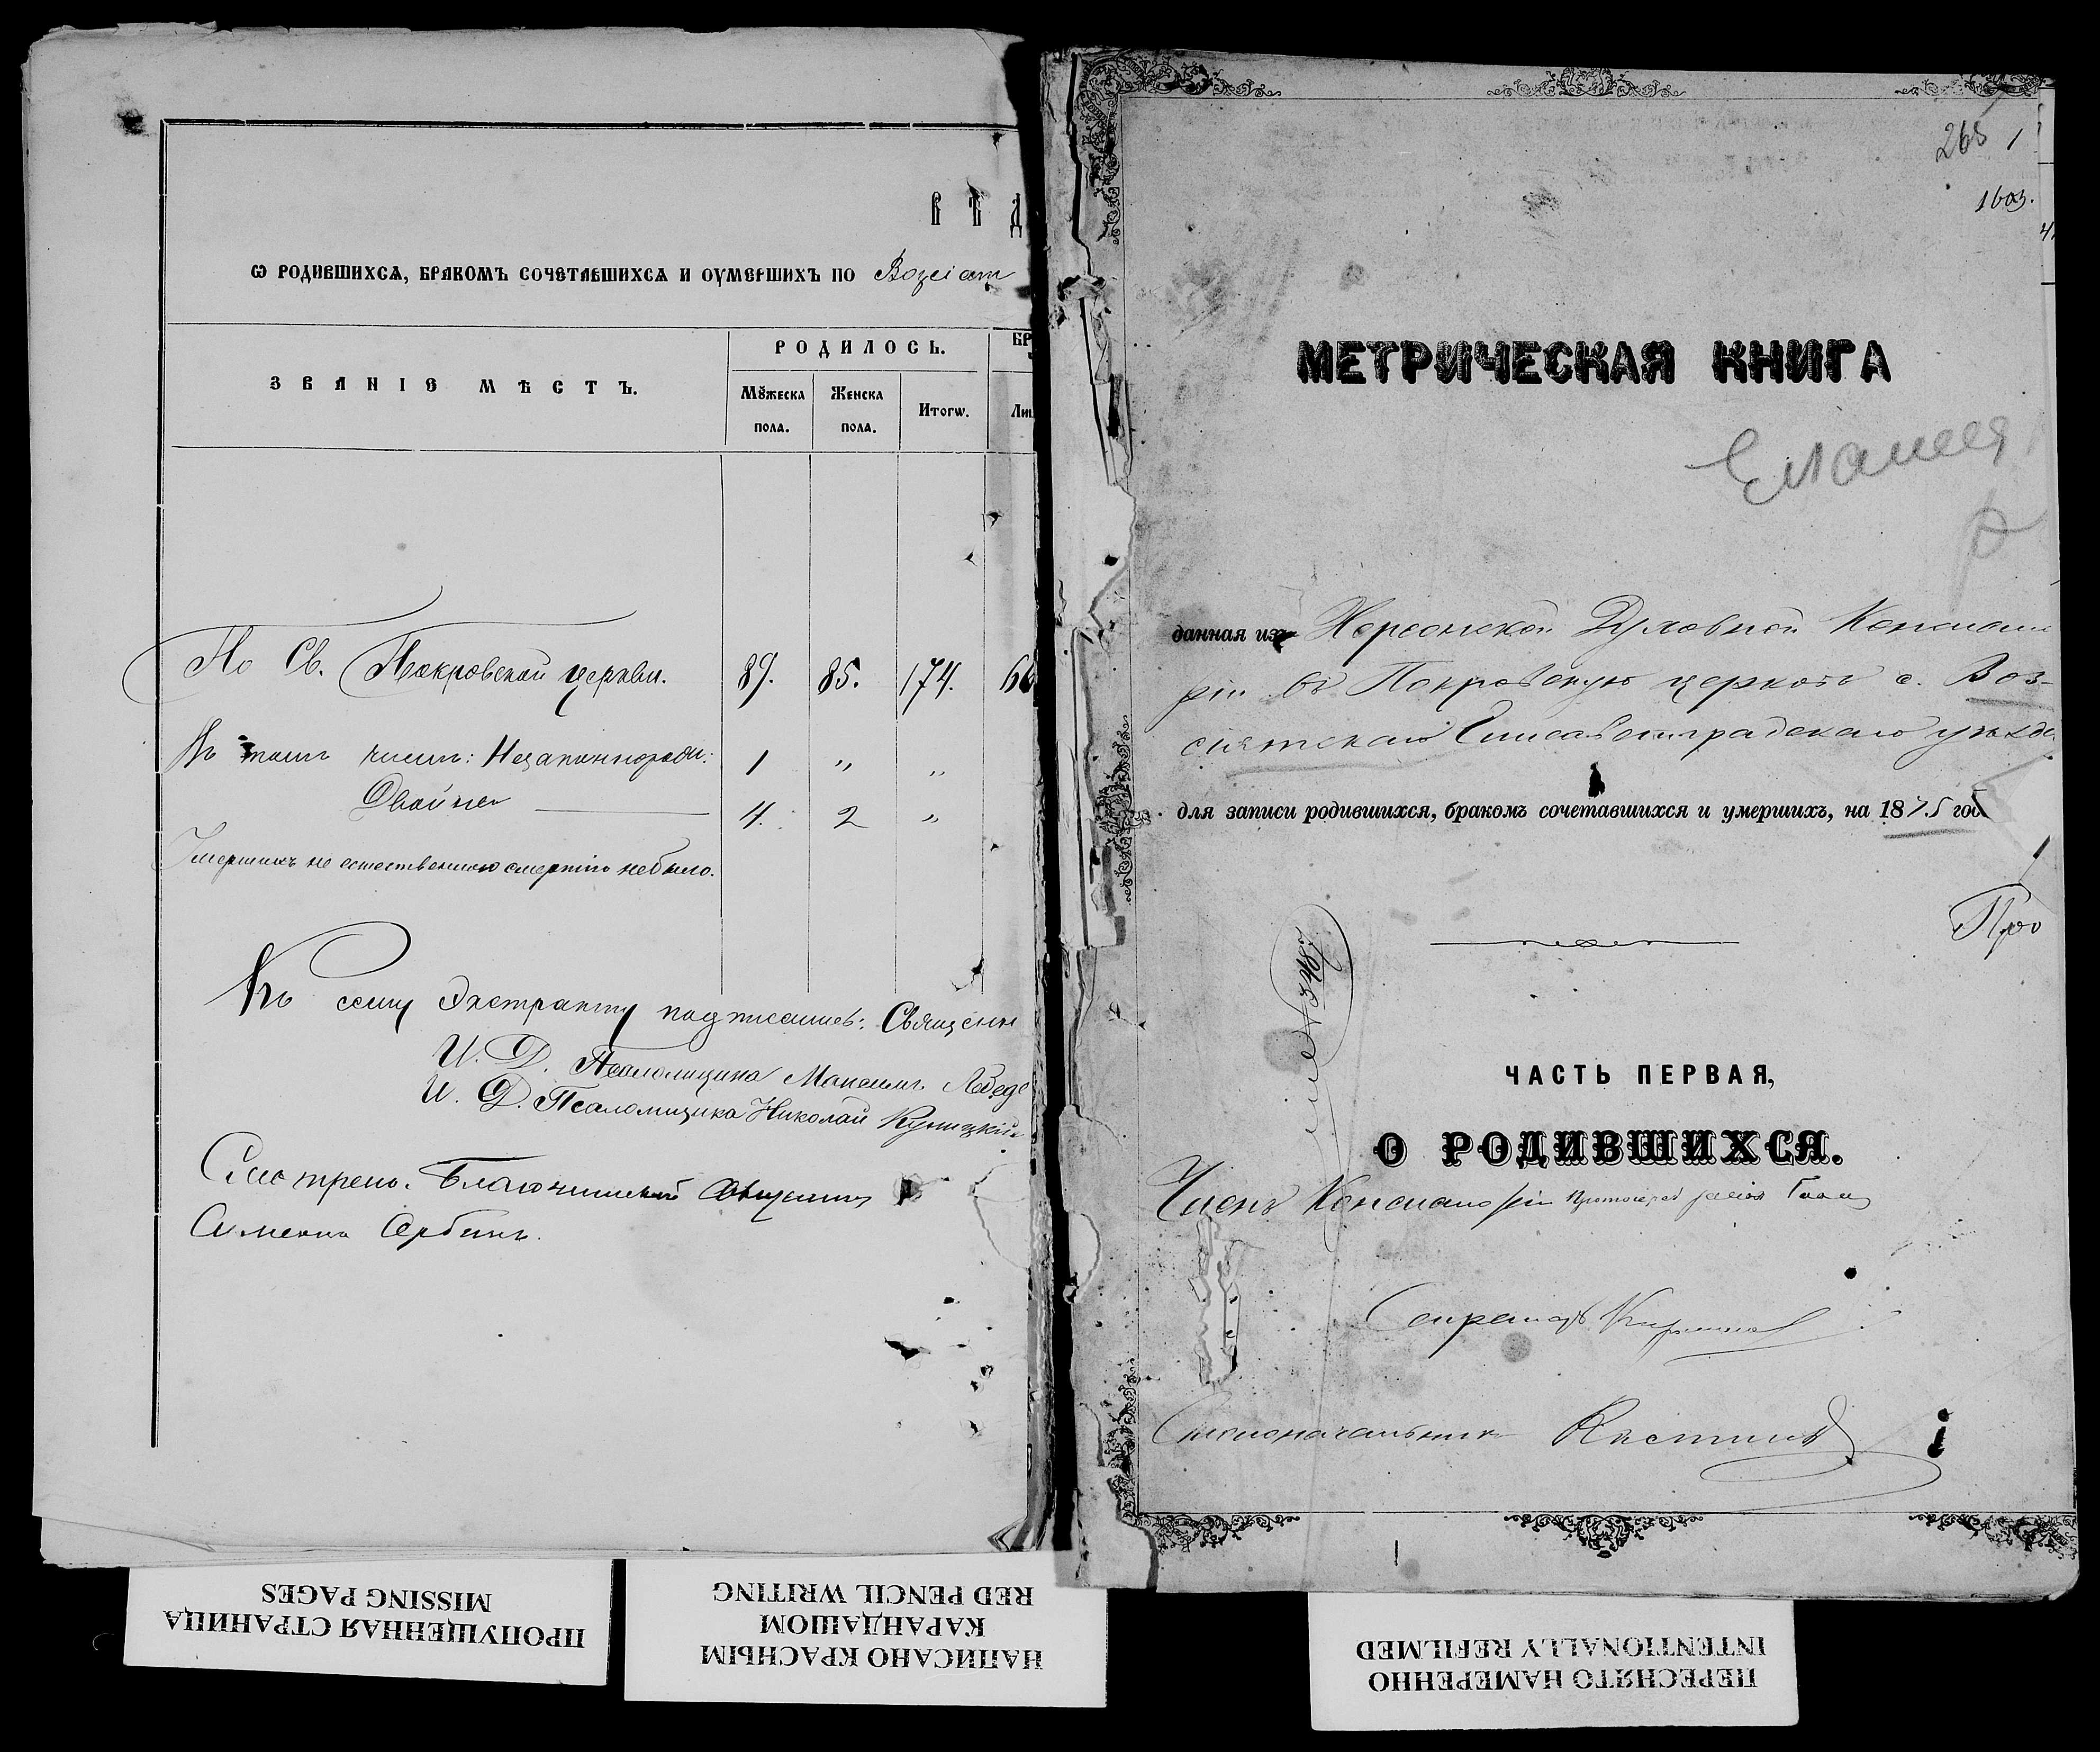 В Ѣ Д
Ѡ РОДИВШИХСѦ, БРАКОМЪ СОЧЕТАВШИХСѦ И ОУМЕРШИХЪ ПО Возсіят
ЗВАНІЕ МѢСТЪ.
РОДИЛОСЬ.
БР
Мꙋжеска пола.
Женска пола.
Итогѡ.
Ли
По Св. Покровской церкви. 89. 85. 174. 66
Въ томъ числѣ: Незаконнорожд: 1 " "
Двойни 4. 2 "
Умершихъ не естественною смертію не было.
Къ сему Экстракту подписались: Священ
И. Д. Псаломщика Максимъ Лебеде
И. Д. Псаломщика Николай Куницкій
Смотрено. Благочинный Священник
Симеонъ Сербинъ.
265 1
1603.
МЕТРИЧЕСКАЯ КНИГА
данная изъ Херсонской Духовной Консисто
ріи въ Покровскую церковь с. Воз-
сіятскаго Елисаветградскаго уѣзда
для записи родившихся, бракомъ сочетавшихся и умершихъ, на 1875 год
Про
ЧАСТЬ ПЕРВАЯ,
О РОДИВШИХСЯ.
Членъ Консисторіи Протоіерей
Секретарь
Столоначальникъ
ПРОПУЩЕННАЯ СТРАНИЦА
MISSING PAGES
НАПИСАНО КРАСНЫМ
КАРАНДАШОМ
RED PENCIL WRITING
ПЕРЕСНЯТО НАМЕРЕННО
INTENTIONALLY REFILMED